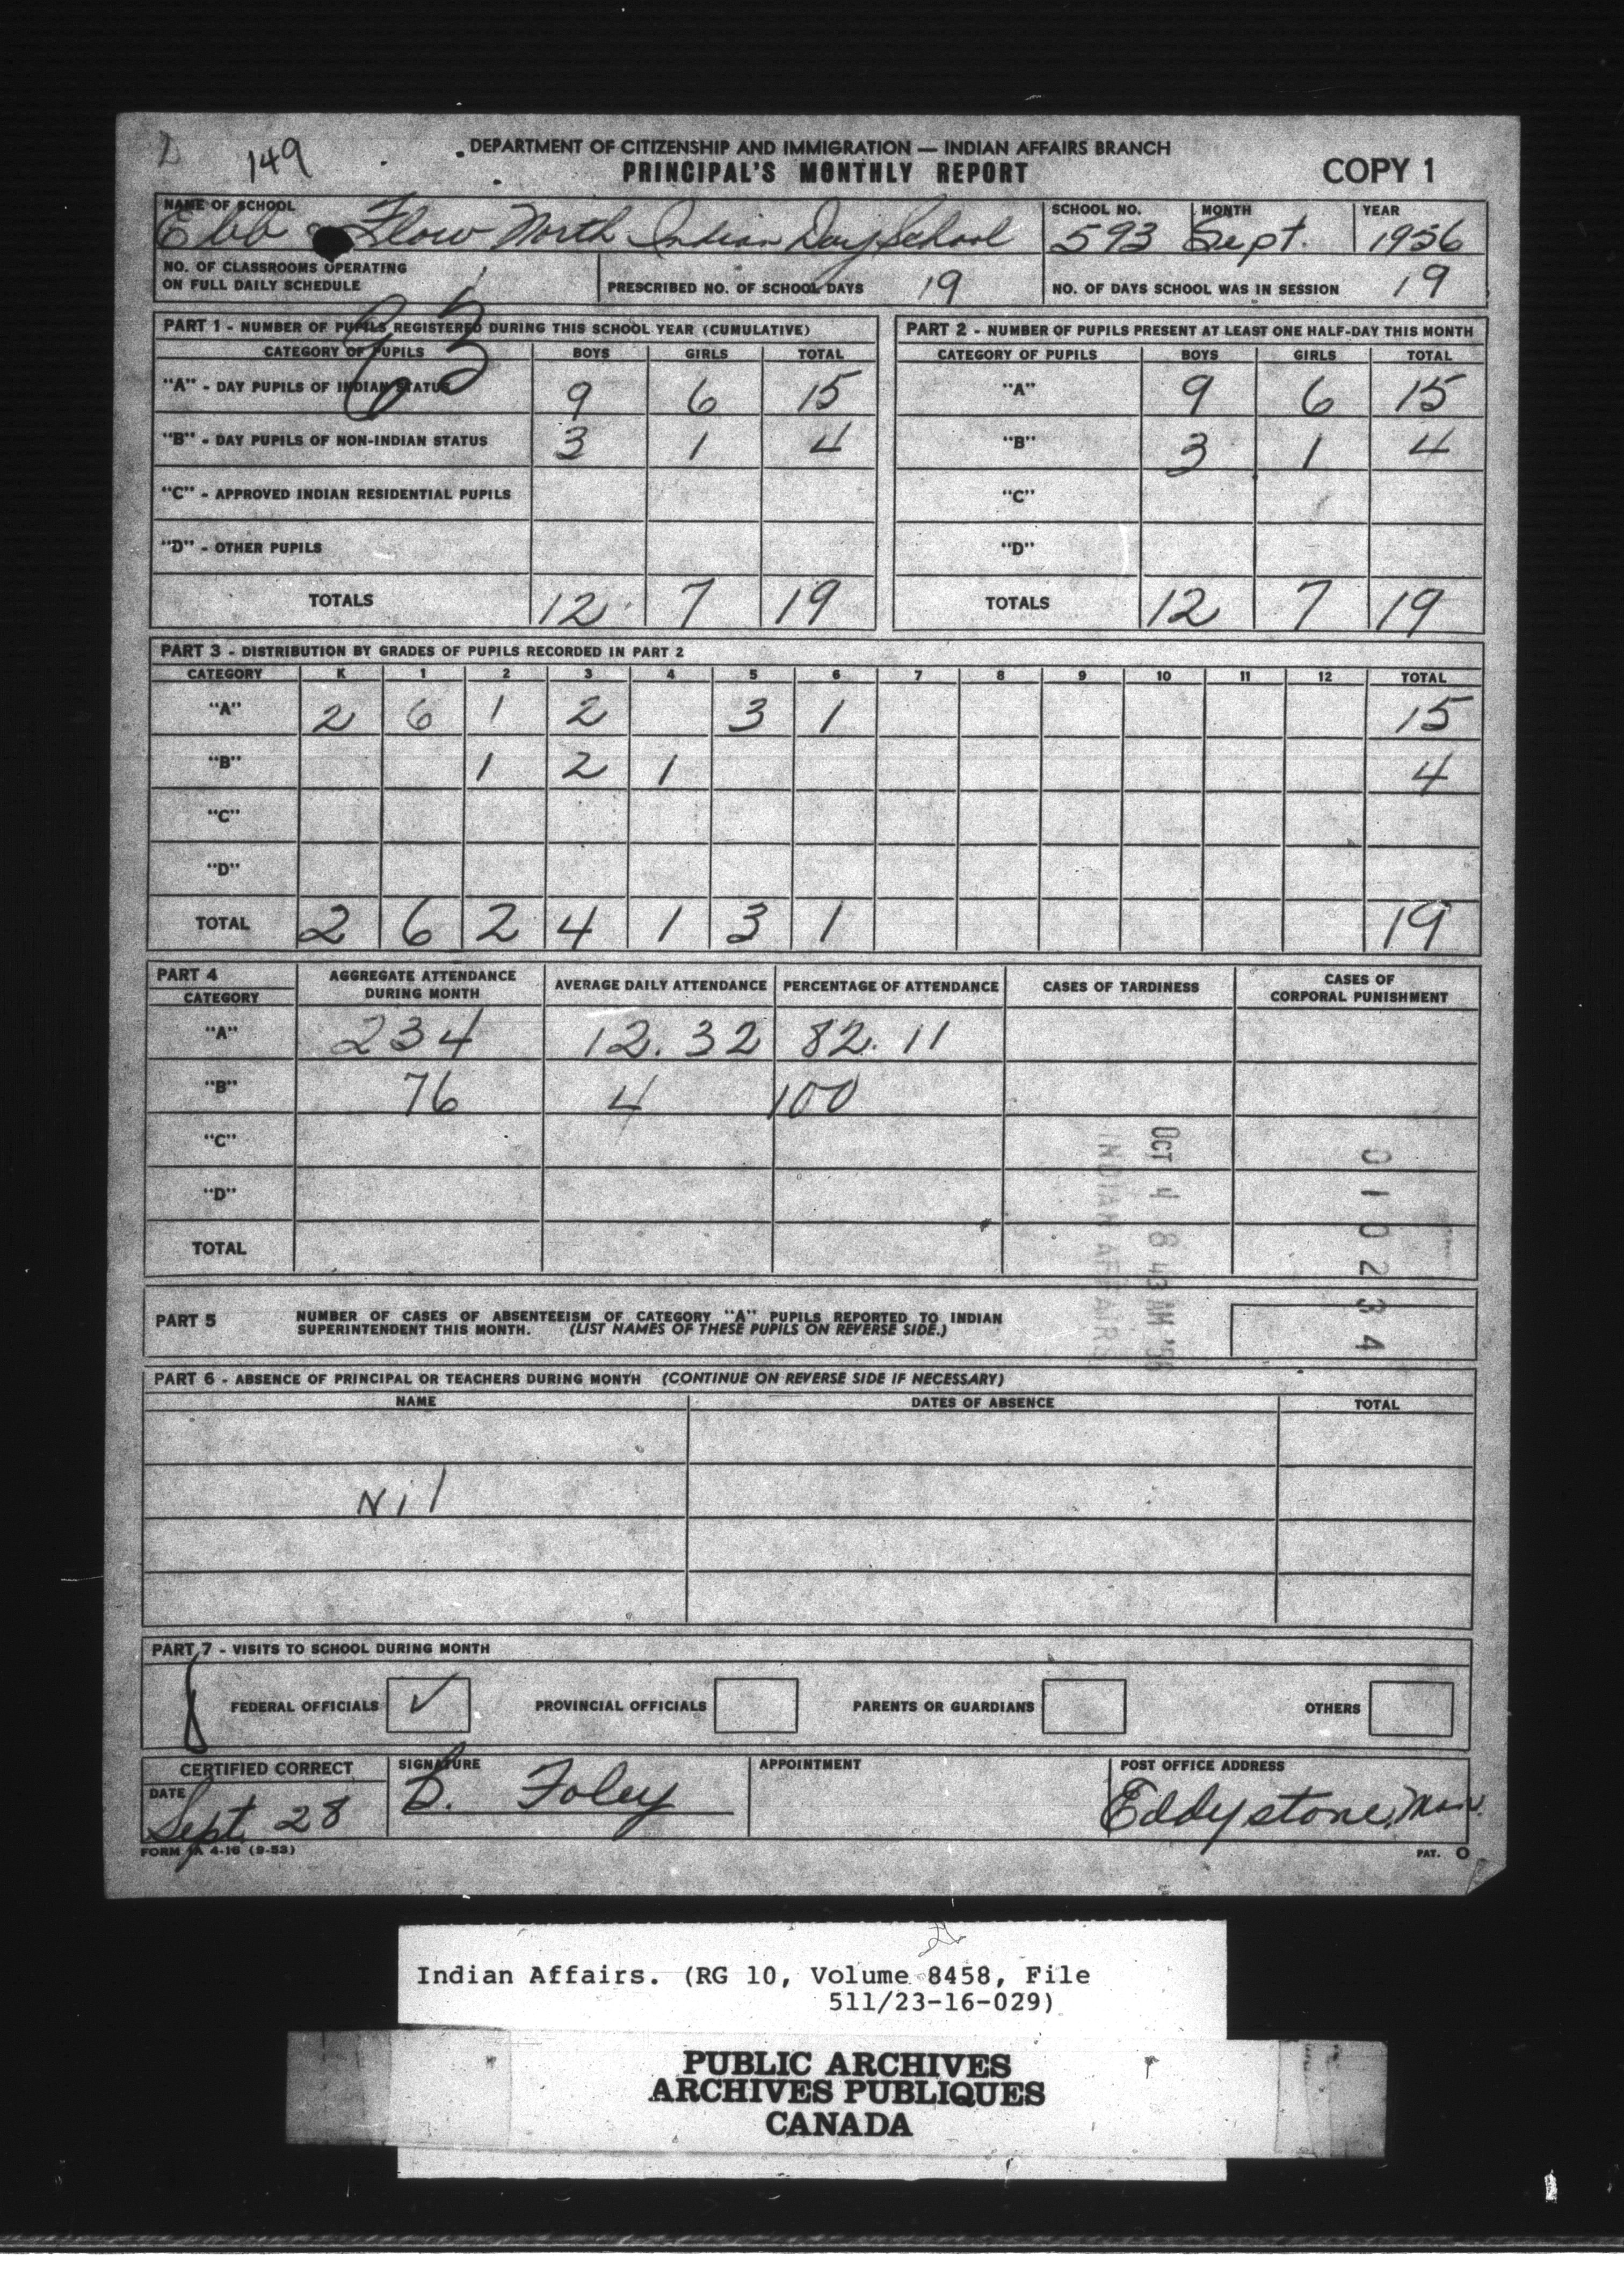 2
149
DEPARTMENT OF CITIZENSHIP AND IMMIGRATION — INDIAN AFFAIRS BRANCH
PRINCIPAL'S MONTHLY REPORT
COPY 1
NAME OF SCHOOL SCHOOL NO. MONTH YEAR
Ebb Flow North Indian Day School 593 Sept. 1956
NO. OF CLASSROOMS OPERATING
ON FULL DAILY SCHEDULE 1 PRESCRIBED NO. OF SCHOOL DAYS 19 NO. OF DAYS SCHOOL WAS IN SESSION 19
63
PART 1 - NUMBER OF PUPILS REGISTERED DURING THIS SCHOOL YEAR (CUMULATIVE)
CATEGORY OF PUPILS BOYS GIRLS TOTAL
"A" - DAY PUPILS OF INDIAN STATUS 9 6 15
"B" - DAY PUPILS OF NON-INDIAN STATUS 3 1 4
"C" - APPROVED INDIAN RESIDENTIAL PUPILS
"D" - OTHER PUPILS
TOTALS 12 7 19
PART 2 - NUMBER OF PUPILS PRESENT AT LEAST ONE HALF-DAY THIS MONTH
CATEGORY OF PUPILS BOYS GIRLS TOTAL
"A" 9 6 15
"B" 3 1 4
"C"
"D"
TOTALS 12 7 19
PART 3 - DISTRIBUTION BY GRADES OF PUPILS RECORDED IN PART 2
CATEGORY K 1 2 3 4 5 6 7 8 9 10 11 12 TOTAL
"A" 2 6 1 2 3 1 15
"B" 1 2 1 4
"C"
"D"
TOTAL 2 6 2 4 1 3 1 19
PART 4
CATEGORY AGGREGATE ATTENDANCE DURING MONTH AVERAGE DAILY ATTENDANCE PERCENTAGE OF ATTENDANCE CASES OF TARDINESS CASES OF CORPORAL PUNISHMENT
"A" 234 12.32 82.11
"B" 76 4 100
"C"
"D"
TOTAL
OCT 4 8 43 AM '56
INDIAN AFFAIRS
010234
PART 5 NUMBER OF CASES OF ABSENTEEISM OF CATEGORY "A" PUPILS REPORTED TO INDIAN
SUPERINTENDENT THIS MONTH. (LIST NAMES OF THESE PUPILS ON REVERSE SIDE.)
PART 6 - ABSENCE OF PRINCIPAL OR TEACHERS DURING MONTH (CONTINUE ON REVERSE SIDE IF NECESSARY)
NAME DATES OF ABSENCE TOTAL
Nil
PART 7 - VISITS TO SCHOOL DURING MONTH
FEDERAL OFFICIALS ✓ PROVINCIAL OFFICIALS PARENTS OR GUARDIANS OTHERS
CERTIFIED CORRECT SIGNATURE APPOINTMENT POST OFFICE ADDRESS
DATE
Sept. 28 B. Foley Eddystone, Man.
FORM IA 4-16 (9-53) PAT. O
Indian Affairs. (RG 10, Volume 8458, File
511/23-16-029)
PUBLIC ARCHIVES
ARCHIVES PUBLIQUES
CANADA